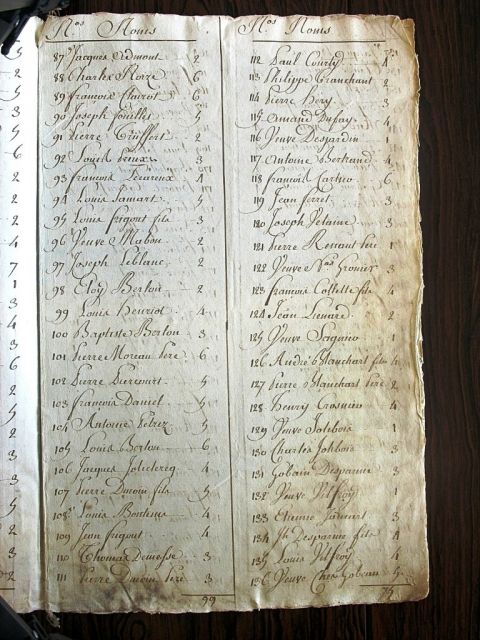 Nos Noms
87 Jacques Edmont 2
88 Charles 6
89 françois Clairot 6
90 Joseph fouillet 5
91 Pierre Truffert 2
92 Louis 3
93 françois 4
94 Louis Lamart 5
95 Louis frigout fils 3
96 Veuve Mabou 2
97 Joseph Leblanc 2
98 Eloy Berton 2
99 Louis Henriot 4
100 Baptiste Berton 3
101 Pierre Moreau Pere 6
102 Pierre Liercourt 5
103 françois Daniel 5
104 Antoine 5
105 Louis Berton 6
106 Jacques Joliclercq 4
107 Pierre fils 5
108 Louis 4
109 Jean frigout 4
110 Thomas 3
111 Pierre Pere 3
99
Nos Noms
112 Paul Courty 4
113 Philippe Tranchant 2
114 Pierre Hery 3
115 Armand Dufay 4
116 Veuve Desjardin 1
117 Antoine Bertrand 4
118 françois Cartier 6
119 Jean forret 3
120 Joseph Petaine 3
121 Pierre Renaut Pere 1
122 Veuve Nas Gronier 3
123 françois Collette fils 4
124 Jean Lienard 2
125 Veuve 1
126 André Blanchart fils 4
127 Pierre Blanchart Pere 2
128 Henry Crosnier 4
129 Veuve Jolibois 1
130 Charles Jolibois 3
131 Gobain Desparme 3
132 Veuve 1
133 Etienne 3
134 Desparme fils 4
135 Louis 4
136 Veuve Gobeau 5
75